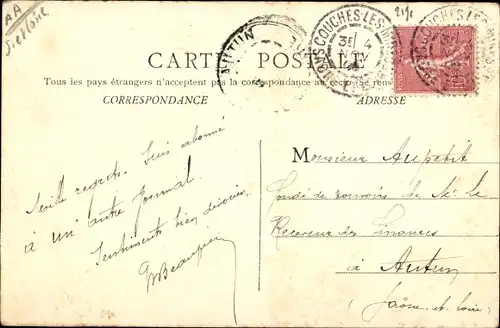 AA
AUTUN
COUCHES-LES-MINES
3E 4
NOV
CARTE POSTALE
Tous les pays étrangers n'acceptent pas la correspondance au recto (Se rens
CORRESPONDANCE
ADRESSE
Mille regrets. Suis abonné
à un autre Journal.
Sentiments bien dévoués
Monsieur Aupetit
Fondé de pouvoirs de Mr le
Receveur des Finances
à Autun
Saône-et-Loire